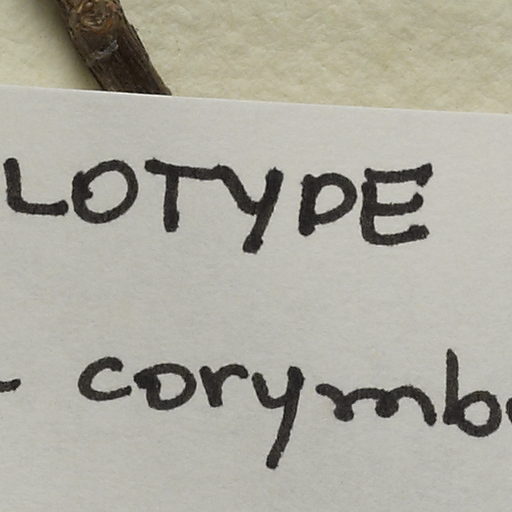 LOTYPE
- corymb